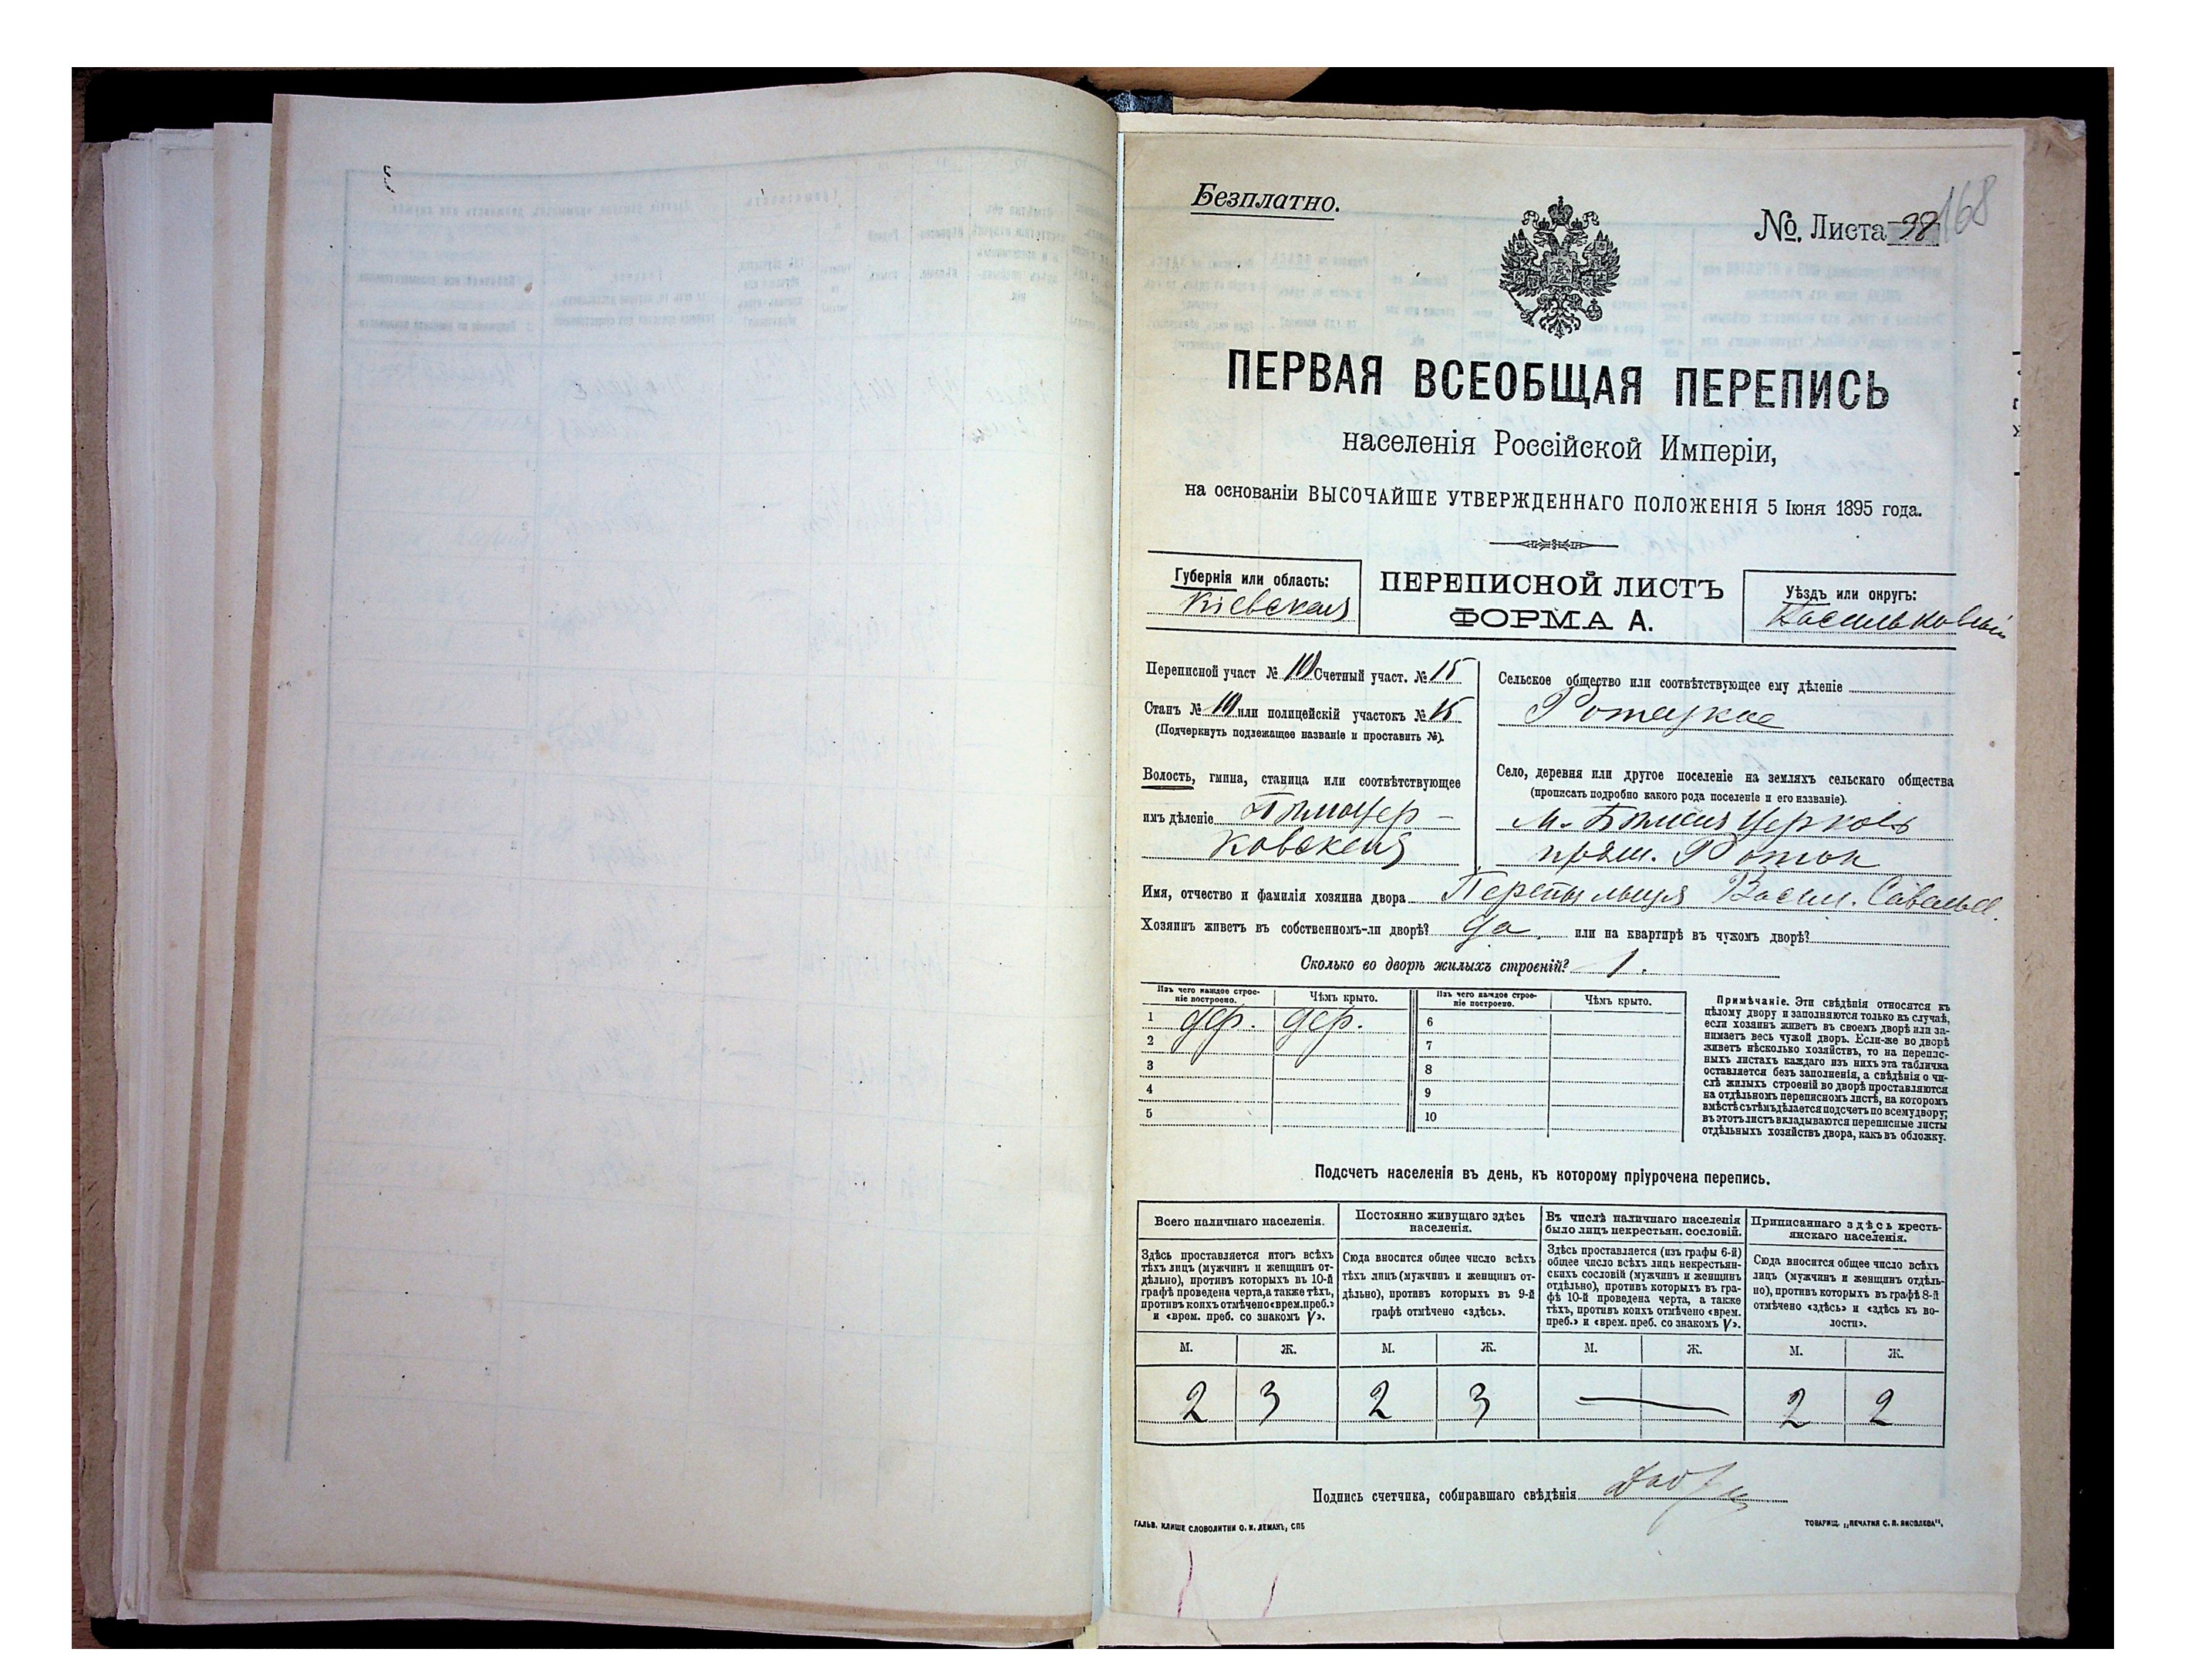 Безплатно.
№ Листа 38
168
ПЕРВАЯ ВСЕОБЩАЯ ПЕРЕПИСЬ
населенія Россійской Имперіи,
на основаніи ВЫСОЧАЙШЕ УТВЕРЖДЕННАГО ПОЛОЖЕНІЯ 5 Іюня 1895 года.
Губернія или область:
Кіевская
ПЕРЕПИСНОЙ ЛИСТЪ
ФОРМА А.
Уѣздъ или округъ:
Васильковскій
Переписной участ № 10 Счетный участ. № 15
Станъ № 10 или полицейскій участокъ № 15
(Подчеркнуть подлежащее названіе и проставить №).
Волость, гмина, станица или соотвѣтствующее
имъ дѣленіе Бѣлоцер-
ковская
Сельское общество или соотвѣтствующее ему дѣленіе
Ротоцкое
Село, деревня или другое поселеніе на земляхъ сельскаго общества
(прописать подробно какого рода поселеніе и его названіе).
М. Бѣлая Церковь
Имя, отчество и фамилія хозяина двора Васил. Савельев.
Хозяинъ живетъ въ собственномъ-ли дворѣ? да или на квартирѣ въ чужомъ дворѣ?
Сколько во дворѣ жилыхъ строеній? 1.
Изъ чего каждое строе-
ніе построено.
Чѣмъ крыто.
Изъ чего каждое строе-
ніе построено.
Чѣмъ крыто.
1 дер. дер.
2
3
4
5
6
7
8
9
10
Примѣчаніе. Эти свѣдѣнія относятся къ
цѣлому двору и заполняются только въ случаѣ,
если хозяинъ живетъ въ своемъ дворѣ или за-
нимаетъ весь чужой дворъ. Если-же во дворѣ
живетъ нѣсколько хозяйствъ, то на перепис-
ныхъ листахъ каждаго изъ нихъ эта табличка
оставляется безъ заполненія, а свѣдѣнія о чи-
слѣ жилыхъ строеній во дворѣ проставляются
на отдѣльномъ переписномъ листѣ, на которомъ
вмѣстѣ съ тѣмъ дѣлается подсчетъ по всему двору;
въ этотъ листъ вкладываются переписные листы
отдѣльныхъ хозяйствъ двора, какъ въ обложку.
Подсчетъ населенія въ день, къ которому пріурочена перепись.
Всего наличнаго населенія.
Здѣсь проставляется итогъ всѣхъ
тѣхъ лицъ (мужчинъ и женщинъ от-
дѣльно), противъ которыхъ въ 10-й
графѣ проведена черта, а также тѣхъ,
противъ коихъ отмѣчено «врем. преб.»
и «врем. преб. со знакомъ V».
Постоянно живущаго здѣсь
населенія.
Сюда вносится общее число всѣхъ
тѣхъ лицъ (мужчинъ и женщинъ от-
дѣльно), противъ которыхъ въ 9-й
графѣ отмѣчено «здѣсь».
Въ числѣ наличнаго населенія
было лицъ некрестьян. сословій.
Здѣсь проставляется (изъ графы 6-й)
общее число всѣхъ лицъ некрестьян-
скихъ сословій (мужчинъ и женщинъ
отдѣльно), противъ которыхъ въ гра-
фѣ 10-й проведена черта, а также
тѣхъ, противъ коихъ отмѣчено «врем.
преб.» и «врем. преб. со знакомъ V».
Приписаннаго здѣсь кресть-
янскаго населенія.
Сюда вносится общее число всѣхъ
лицъ (мужчинъ и женщинъ отдѣль-
но), противъ которыхъ въ графѣ 8-й
отмѣчено «здѣсь» и «здѣсь къ во-
лости».
М. Ж. М. Ж. М. Ж. М. Ж.
2 3 2 3 — 2 2
Подпись счетчика, собиравшаго свѣдѣнія
ГАЛЬВ. КЛИШЕ СЛОВОЛИТНИ О. И. ЛЕМАНЪ, СПБ
ТОВАРИЩ. „ПЕЧАТНЯ С. П. ЯКОВЛЕВА".